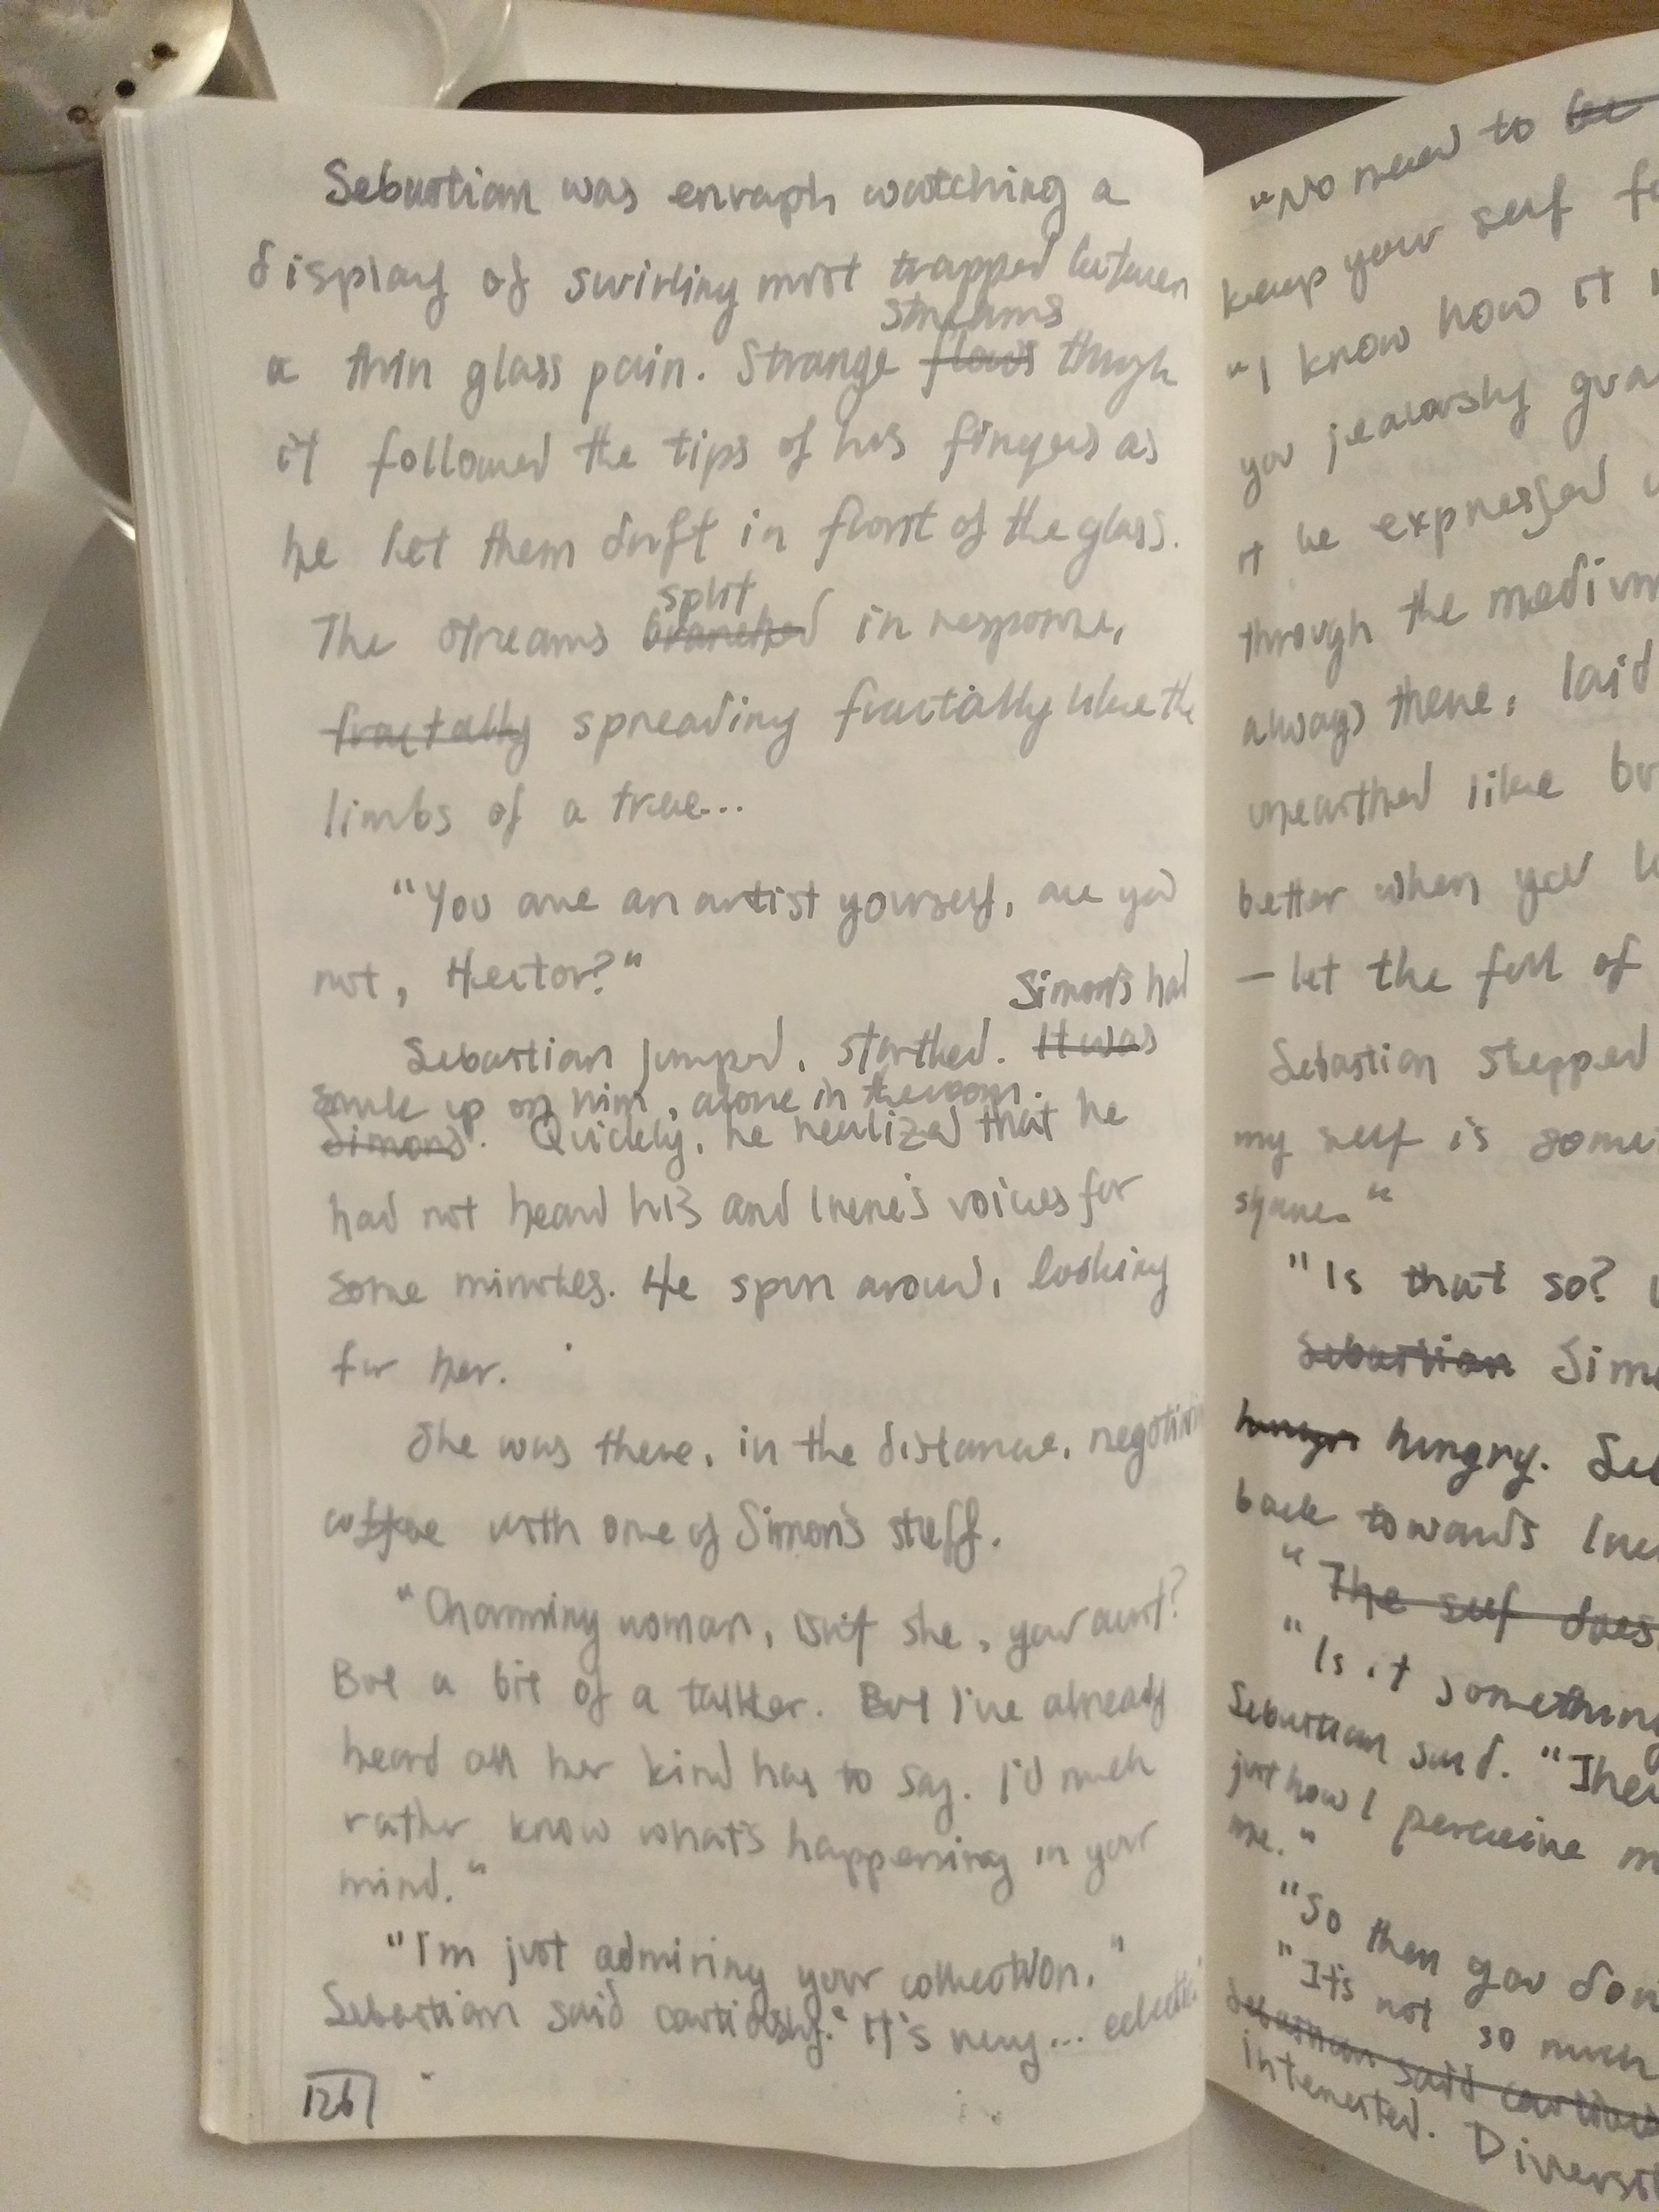 Sebastian was enraph watching a
display of swirling mist trapped between
streams
a thin glass pain. Strange flows though
it followed the tips of his fingers as
he let them drift in front of the glass.
split
The streams branched in response,
fractally spreading fractally like the
limbs of a tree...
"You are an artist yourself, are you
not, Hector?"
Simon's had
Sebastian jumped, startled. It was
snuk up on him, alone in the room.
Simons. Quickly, he realized that he
had not heard his and Irene's voices for
some minutes. He spun around, looking
for her.
She was there, in the distance,
coffee with one of Simon's staff.
"Charming woman, isn't she, your aunt?
But a bit of a talker. But I've already
heard all her kind has to say. I'd much
rather know what's happening in your
mind."
"I'm just admiring your collection."
Sebastian said cautiously. "It's very...
126
"No need to be
keep your self
"I know how it
you jealously
it be expressed
through the medium
always there, laid
unearthed like
better when you
- let the full of
Sebastian stepped
my self is
"Is that so?
Sebastian
hungry.
back towards
"The self does
"Is it something
Sebastian said.
just how I perceive
me."
"So then you
"It's not so much
Sebastian said
interested.